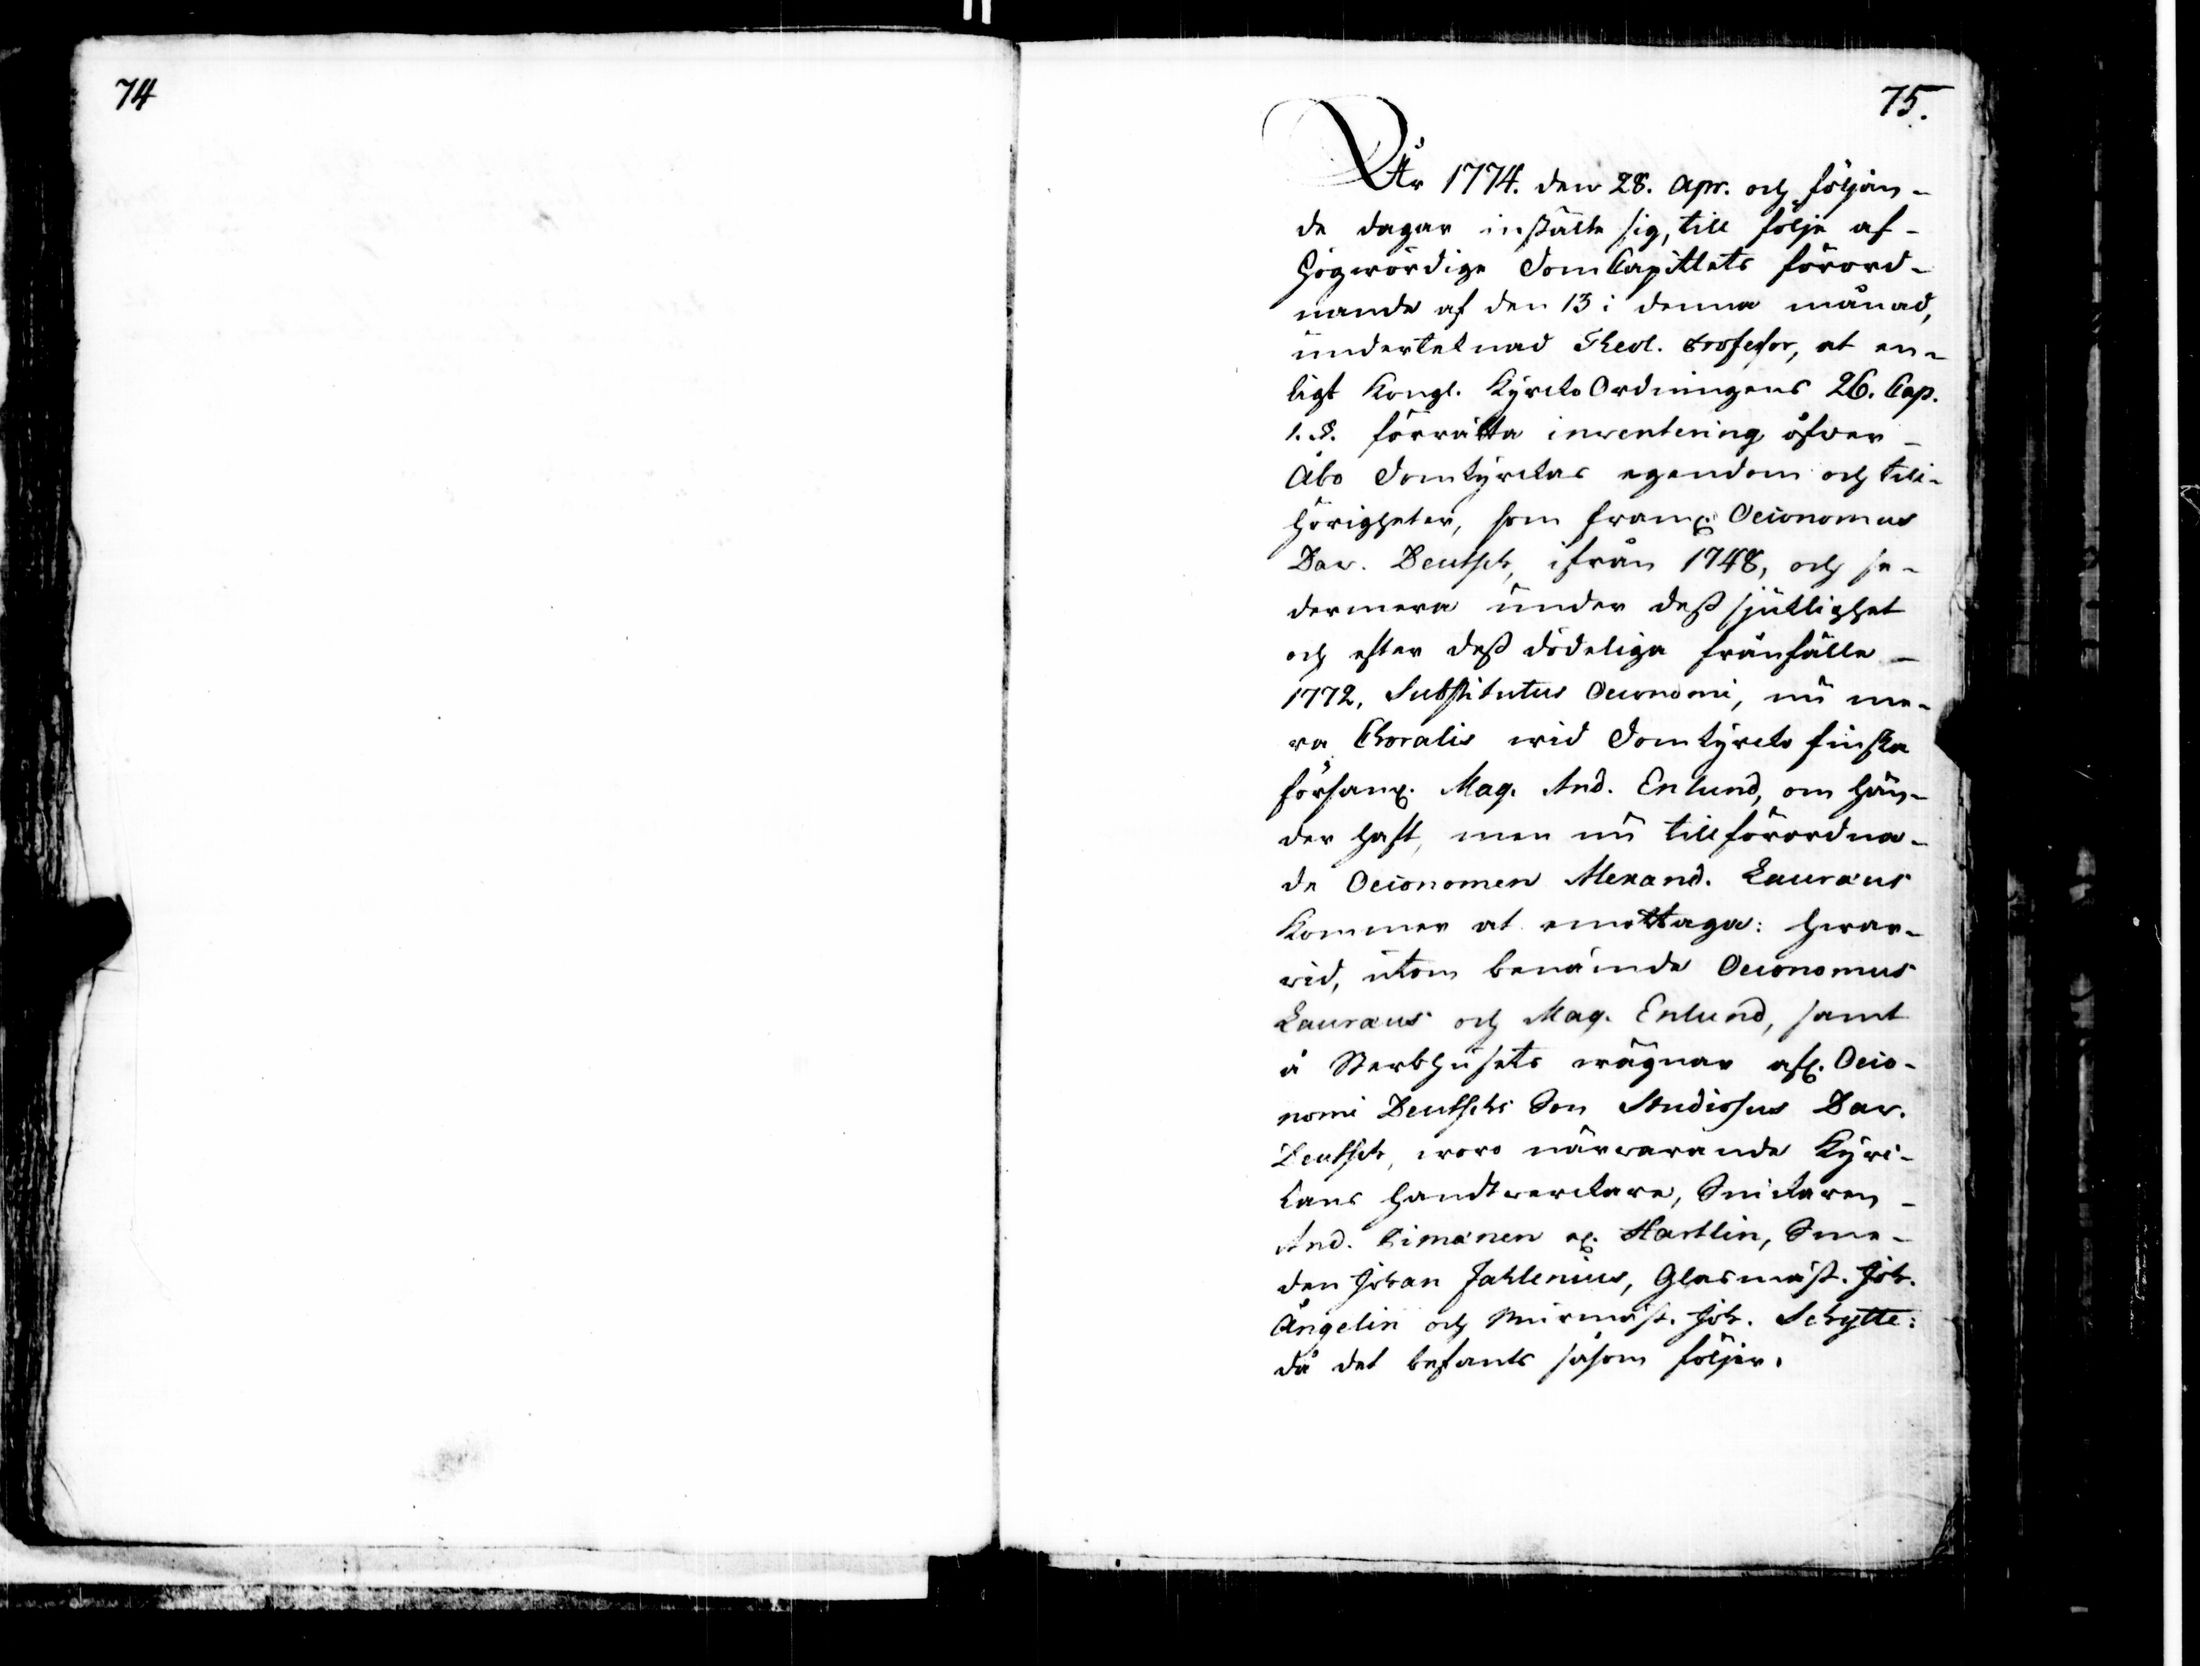 74
75.
År 1774. den 28. Apr. och följan-
de dagar instälte sig, till följe af
Högwördige DomCapitlets förord-
nande af den 13 i denna månad,
underteknad Theol. Professor, at en-
ligt Kongl. KyrckoOrdningens 26. Cap.
1. §. förrätta inventering öfwer
Åbo Domkyrckas egendom och till-
hörigheter, som framl. Oeconomus
Dav. Deutsch, ifrån 1748, och se-
dermera under dess sjuklighet
och efter dess dödeliga frånfälle
1772, Substitutus Oeconomi, nu me-
ra Choralis wid Domkyrcko finska
församl. Mag. And. Enlund, om hän-
der haft, men nu tillförordna-
de Oeconomen Alexand. Lauræus
kommer at emottaga: hwar-
wid, utom benämde Oeconomus
Lauræus och Mag. Enlund, samt
å Sterbhusets wägnar afl. Oeco-
nomi Deutschs Son Studiosus Dav.
Deutsch, woro närwarande Kyrc-
kans handtwerckare, Snickaren
And. Simonen el. Hartlin, Sme-
den Johan Jahlenius, Glasmäst. Joh.
Ångelin och Murmäst. Joh. Schytte:
då det befants såsom följer.